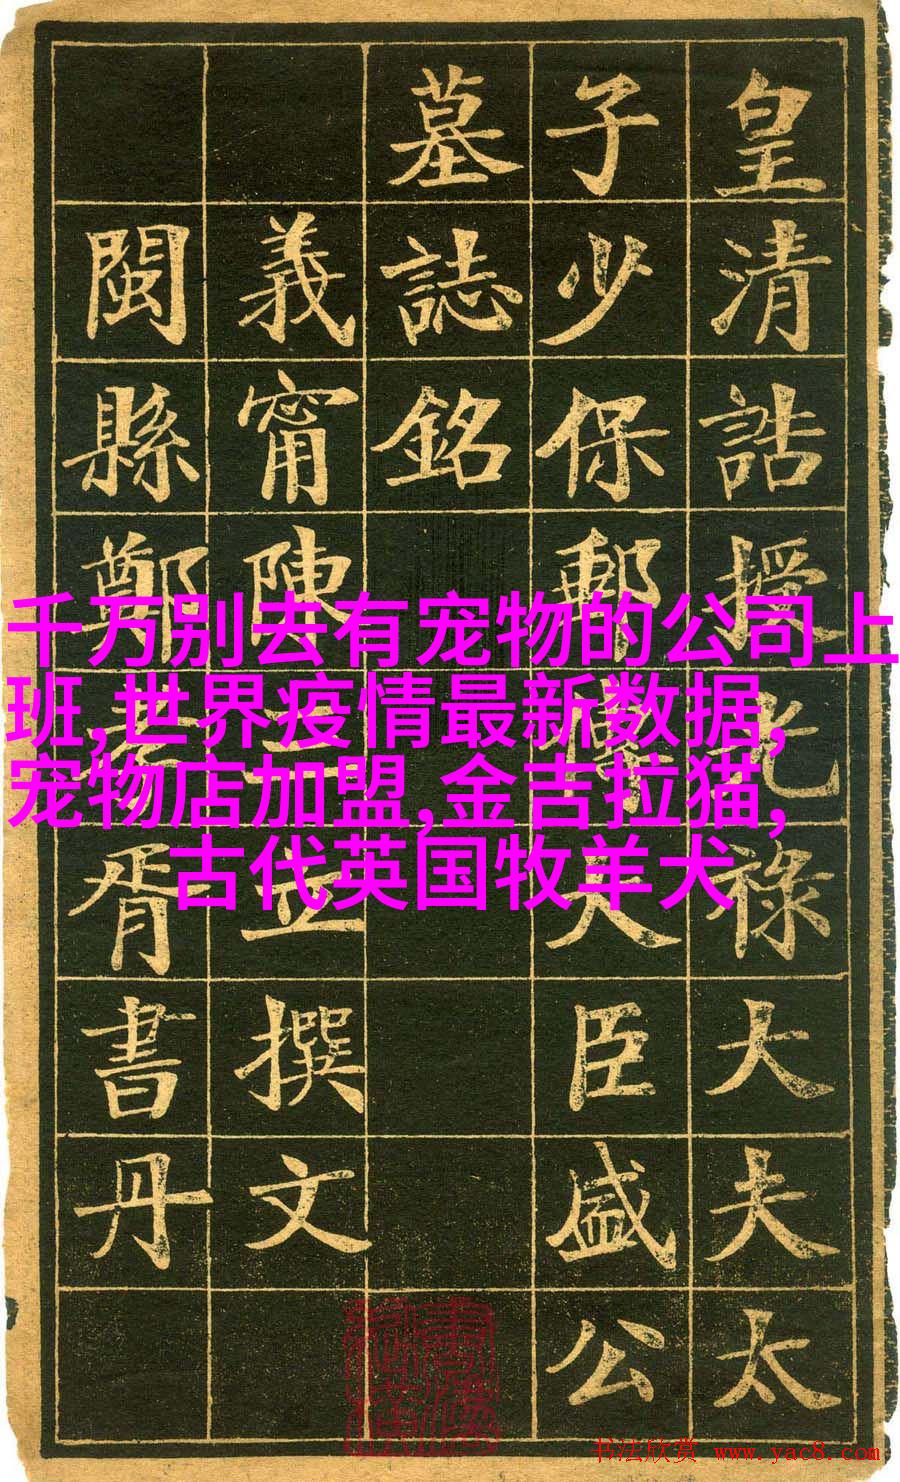 皇清誥授光祿大夫太
子少保郵傳大臣盛公
墓誌銘
義甯陳三立撰文
閩縣鄭孝胥書丹
千万别去有宠物的公司上
班,世界疫情最新数据,
宠物店加盟,金吉拉猫,
古代英国牧羊犬
书法欣赏 www.yac8.com